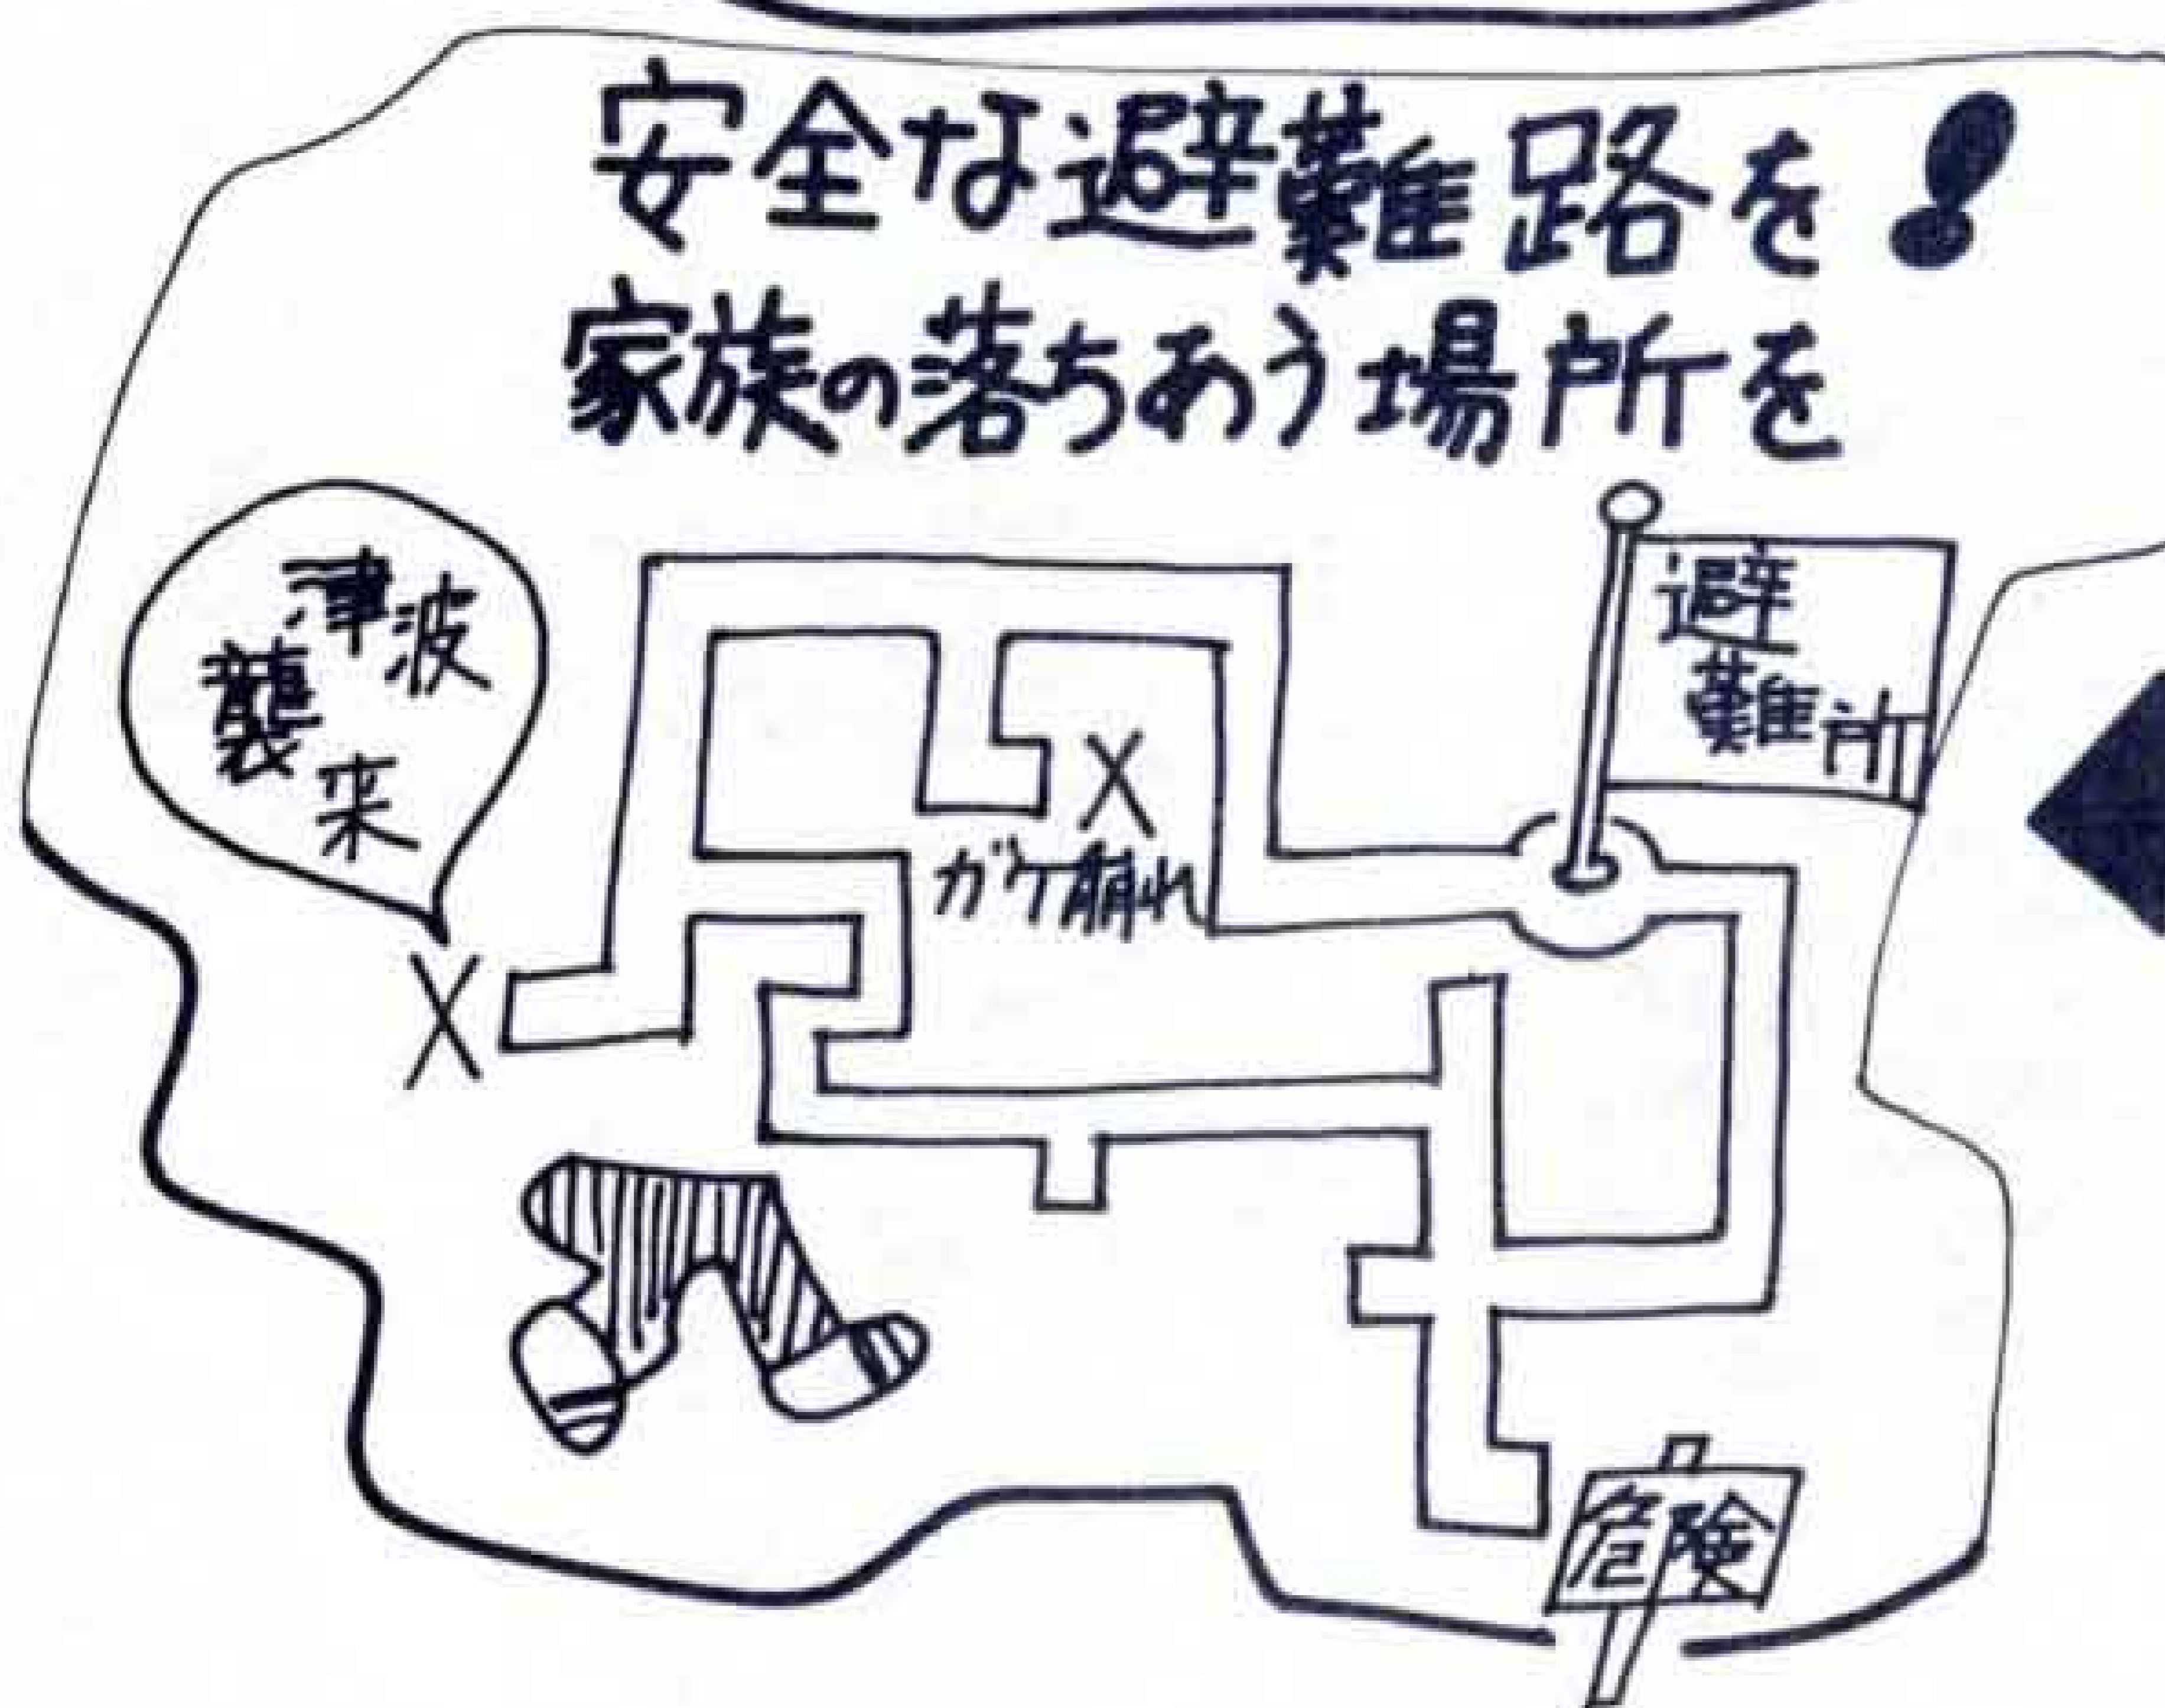 安全な避難路を!
家族の落ちあう場所を
津波
襲来
避難所
ガケ崩れ
危険